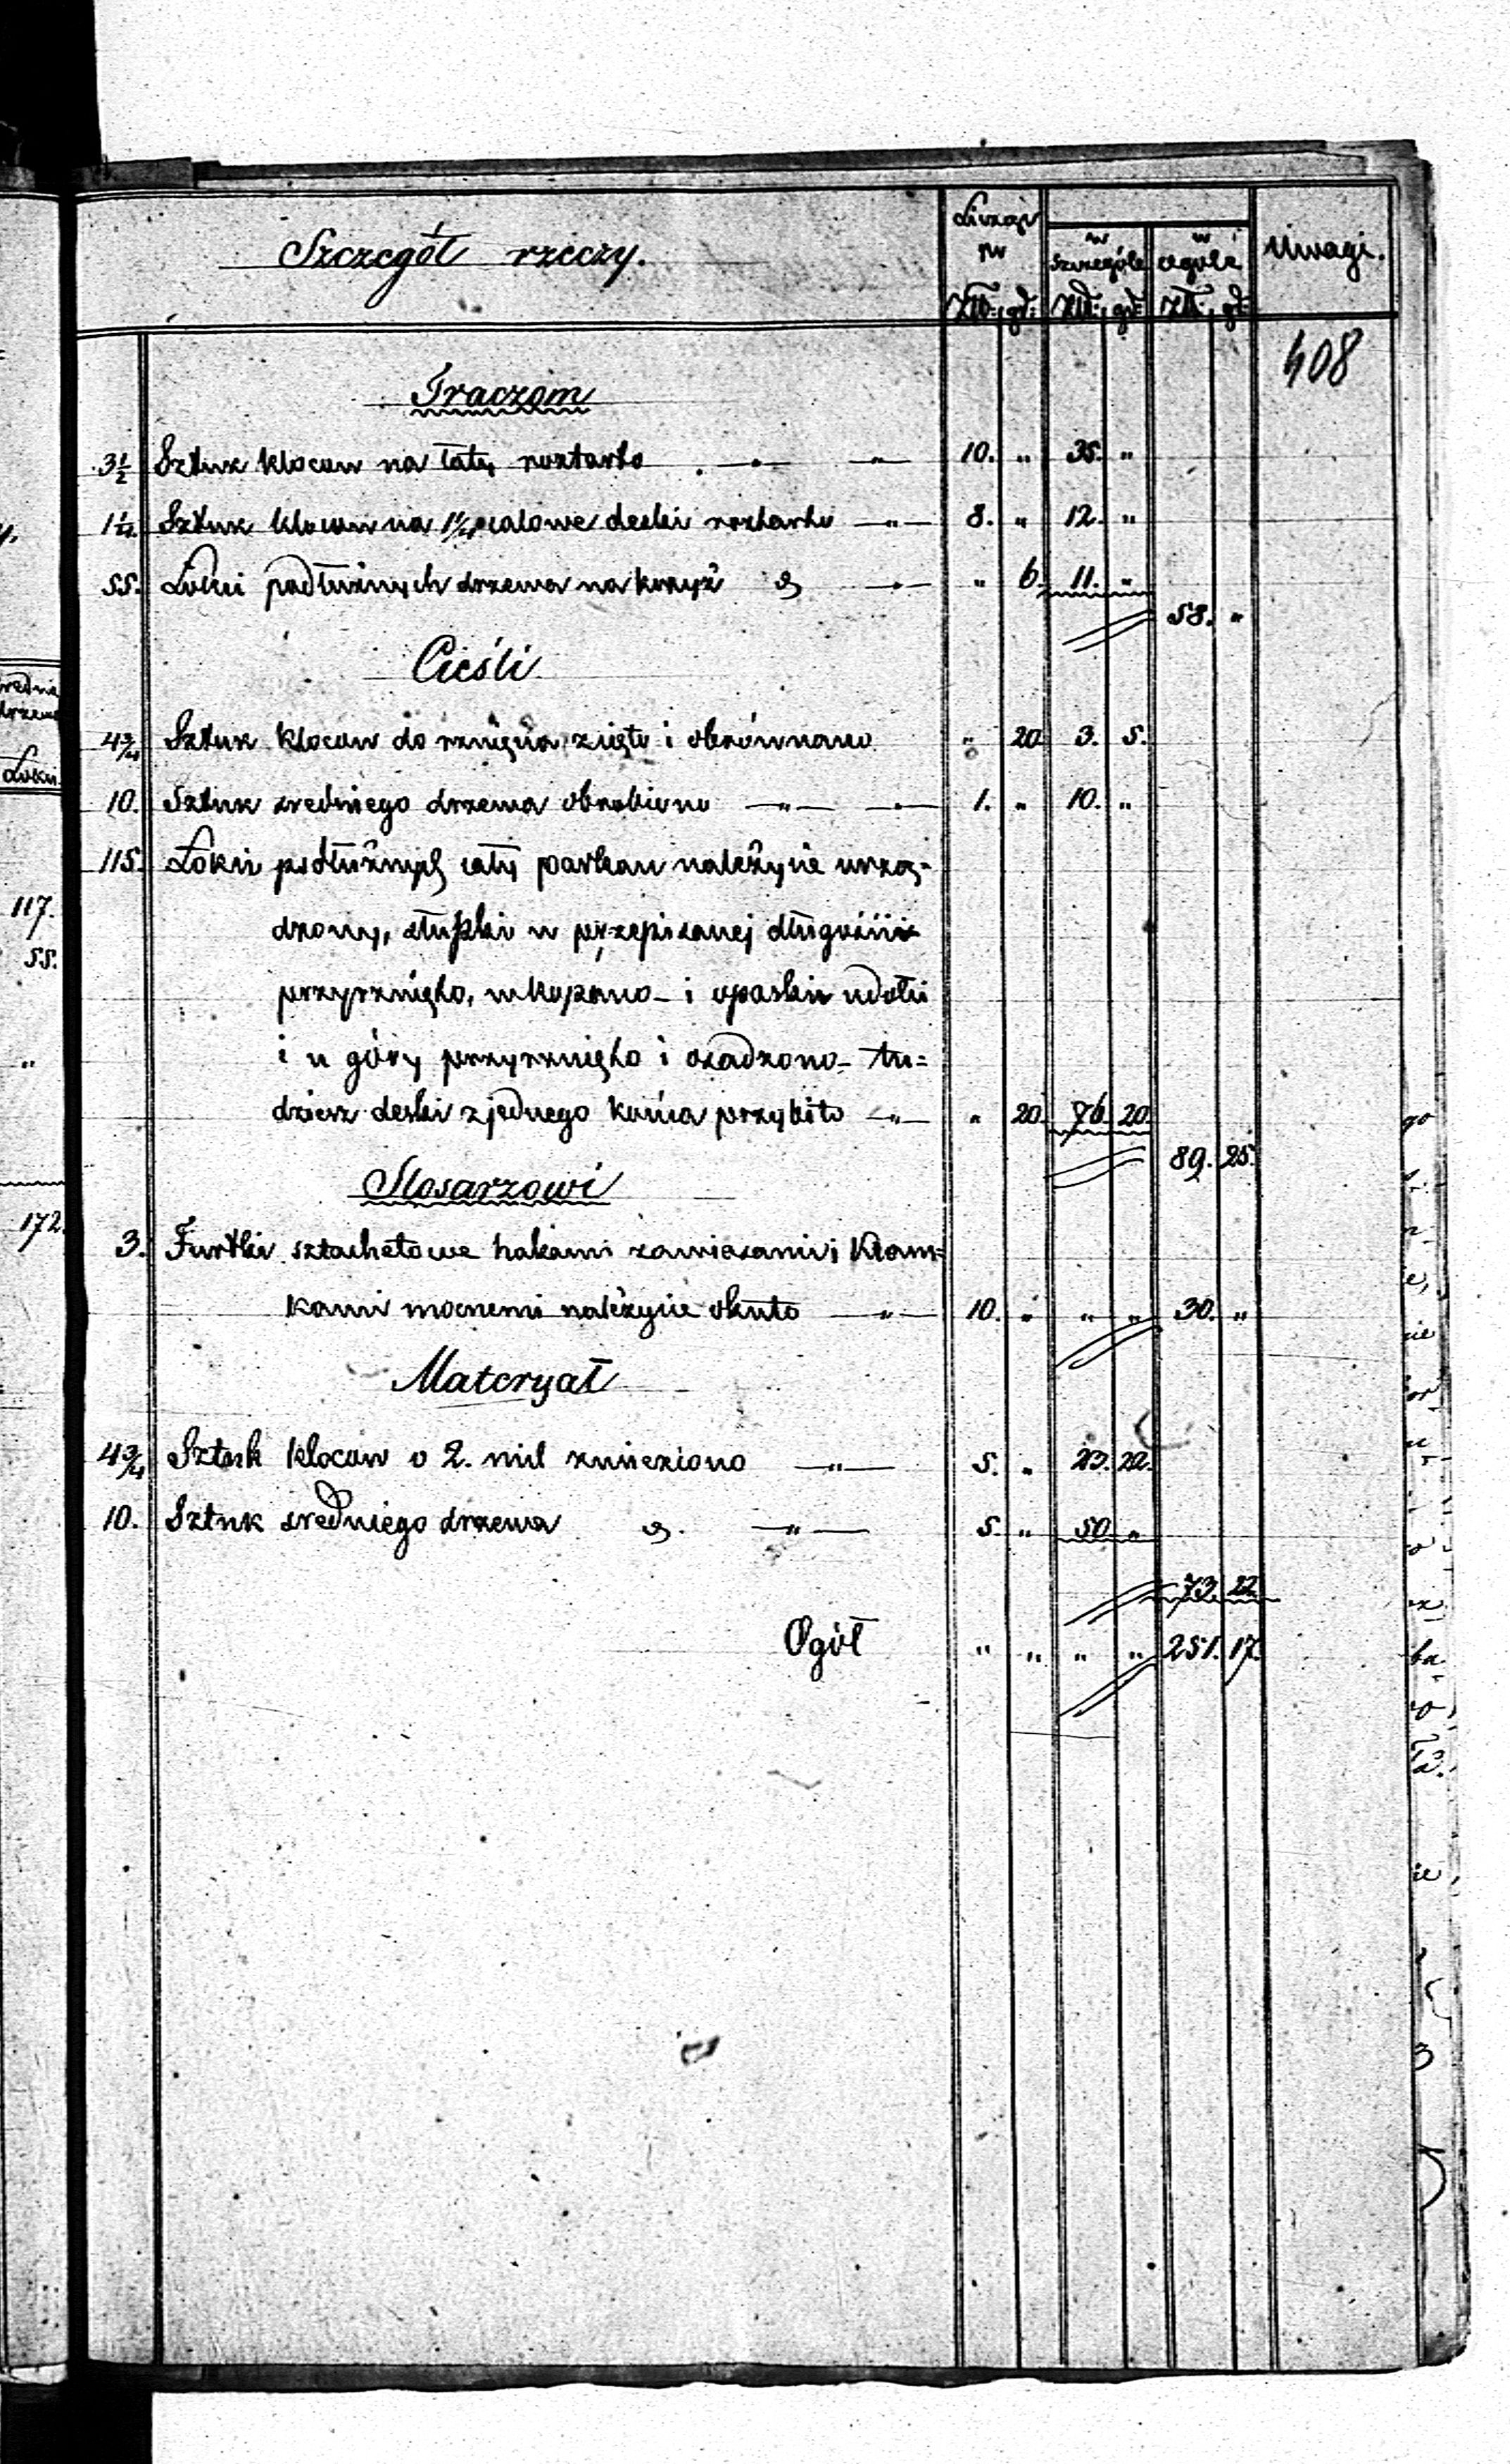 Szczegół rzeczy.
Licząc w
w szczególe
w ogóle
Uwagi.
Złt: gr: Złt: gr: Złt: gr:
408
Traczom
3½ Sztuk klocow na łaty roztarto " " 10. " 35. "
1¼ Sztuk klocow na 1¼ calowe deski roztarto " 8. " 12. "
55. Łokci podłużnych drzewa na krzyż " " 6. 11. "
58. "
Cieśli
4¾ Sztuk klocow do rznięcia zięto i obrównano " 20. 3. 5.
10. Sztuk sredniego drzewa obrobiono " " 1. " 10. "
115. Łokci podłużnych cały parkan należycie urzą=
dzony, słupki w przepisanej długości
przyrznięto, wkopano i opaski u dołu
i u góry przyrznięto i osadzono tu=
dziesz deski z jednego końca przybito " " 20. 76. 20.
89. 25.
Slosarzowi
3. Furtki sztachetowe hakami zawiasami i Klam=
kami mocnemi należycie okuto " 10. " " " 30. "
Materyał
4¾ Sztuk klocow o 2. mil zwieziono " 5. " 23. 22.
10. Sztuk sredniego drzewa " 5. " 50. "
73. 22.
Ogół " " " " 251. 17.
średnie
drzewo
Łokci
117.
55.
"
172.